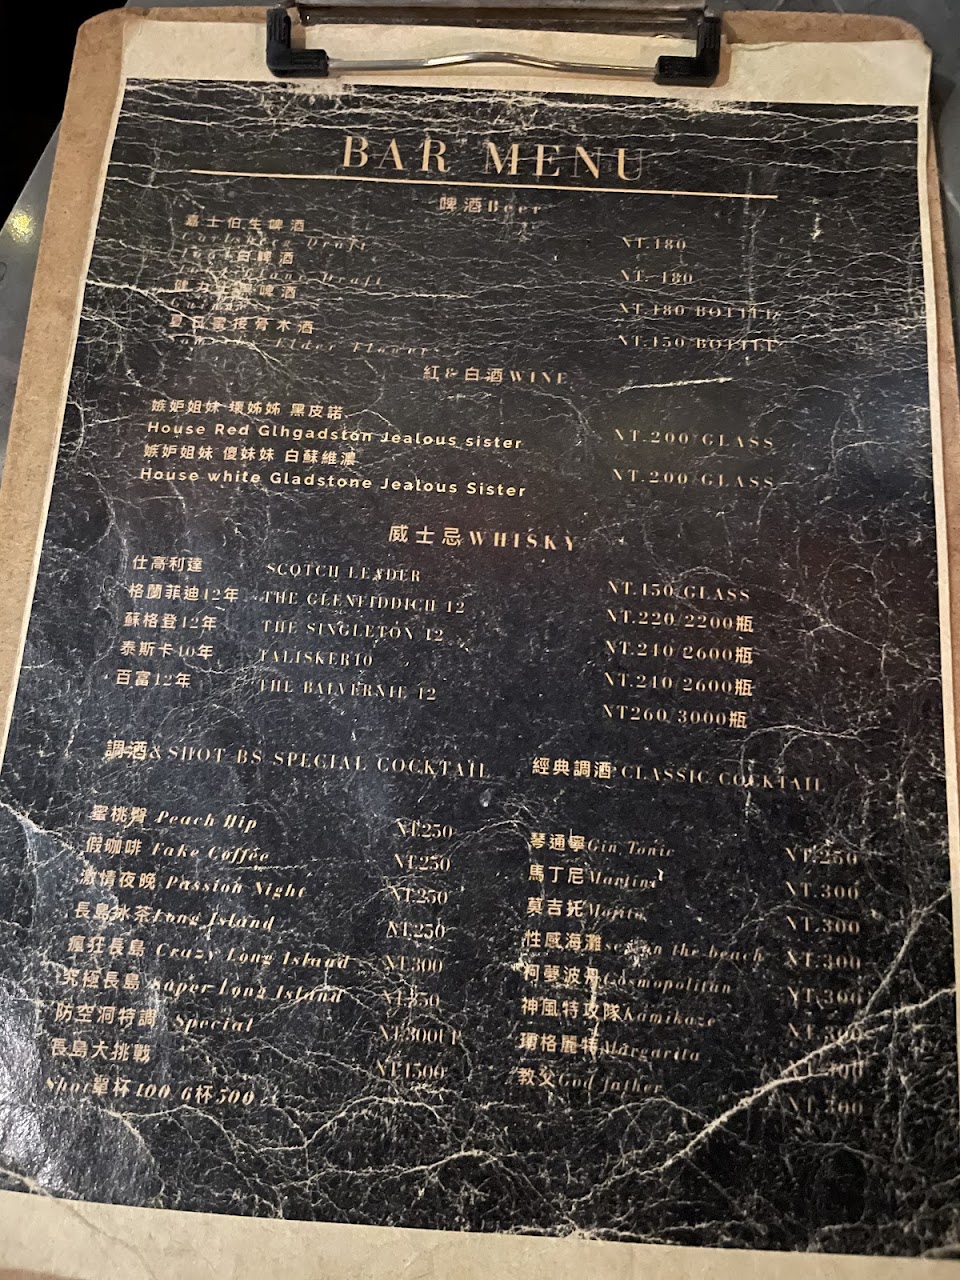 BAR MENU
啤酒Beer
嘉士伯生啤酒 NT.180
Carlsberg Draft
白啤酒 NT. 180
Blanc Draft
啤酒 NT.180/BOTTLE
接骨木酒 NT.150/BOTTLE
Elder Flower
紅&白酒WINE
嫉妒姐妹 壞姊姊 黑皮諾
House Red Glhgadston Jealous sister NT.200/GLASS
嫉妒姐妹 傻妹妹 白蘇維濃
House white Gladstone Jealous Sister NT.200/GLASS
威士忌WHISKY
仕高利達 SCOTCH LEADER NT.150/GLASS
格蘭菲迪12年 THE GLENFIDDICH 12 NT.220/2200瓶
蘇格登12年 THE SINGLETON 12 NT.240/2600瓶
泰斯卡10年 TALISKER10 NT.240/2600瓶
百富12年 THE BALVERNIE 12 NT260/3000瓶
調酒&SHOT-BS SPECIAL COCKTAIL
蜜桃臀 Peach Hip NT.250
假咖啡 Fake Coffee NT.250
激情夜晚 Passion Night NT.250
長島冰茶Long Island NT.250
瘋狂長島 Crazy Long Island NT.300
究極長島 Super Long Island NT.350
防空洞特調 Special NT.300UP
長島大挑戰 NT.1500
Shot單杯100/6杯500
經典調酒 CLASSIC COCKTAIL
琴通寧Gin Tonic NT.250
馬丁尼Martini NT.300
莫吉托Mojito NT.300
性感海灘sex on the beach NT.300
柯夢波丹Cosmopolitan NT.300
神風特攻隊Kamikaze NT.300
瑪格麗特Margarita NT.300
教父God father NT.300